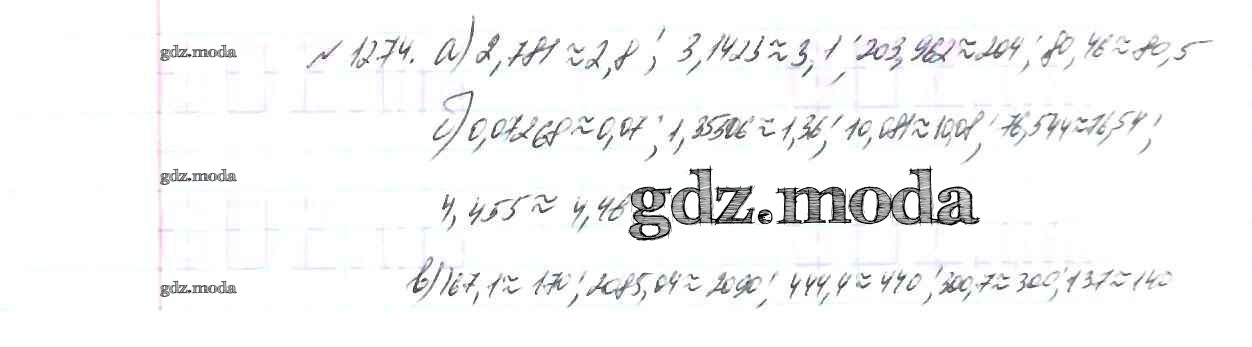 gdz.moda № 1274. а) 2,781 ≈ 2,8 ; 3,1423 ≈ 3,1 ; 203,962 ≈ 204 ; 80,46 ≈ 80,5
б) 0,07268 ≈ 0,07 ; 1,35506 ≈ 1,36 ; 10,081 ≈ 10,08 ; 76,544 ≈ 76,54 ;
gdz.moda
4,455 ≈ 4,46 gdz.moda
gdz.moda в) 167,1 ≈ 170 ; 2085,04 ≈ 2090 ; 444,4 ≈ 440 ; 300,7 ≈ 300 ; 137 ≈ 140